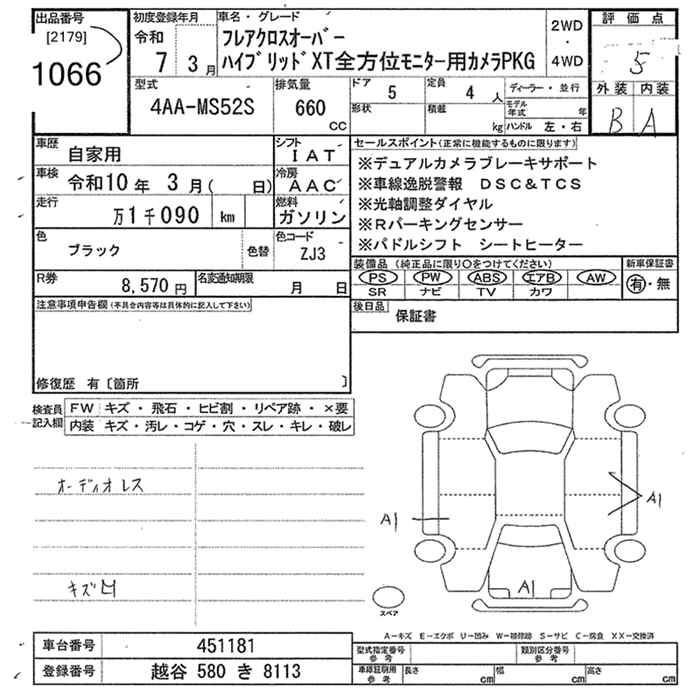 出品番号
[2179]
1066
初度登録年月
令和
7 3月
車名・グレード
フレアクロスオーバー
ハイブリッドXT全方位モニター用カメラPKG
2WD
・
4WD
評価点
5
外装 内装
B A
型式
4AA-MS52S
排気量
660
CC
ドア 5
定員 4 人
形状
積載 kg
ディーラー・並行
モデル年式 年
ハンドル 左・右
車歴
自家用
シフト
IAT
車検 令和10年 3月( 日)
冷房
AAC
走行 万1千090 km
燃料
ガソリン
色
ブラック
色替
色コード
ZJ3
R券 8,570円
名変通知期限 月 日
セールスポイント(正常に機能するものに限ります)
※デュアルカメラブレーキサポート
※車線逸脱警報 DSC&TCS
※光軸調整ダイヤル
※Rパーキングセンサー
※パドルシフト シートヒーター
装備品(純正品に限り○をつけてください)
PS PW ABS エアB AW
SR ナビ TV カワ
新車保証書
有・無
後日品
保証書
注意事項申告欄(不具合内容等は具体的に記入して下さい)
修復歴 有〔箇所 〕
検査員記入欄
FW キズ・飛石・ヒビ割・リペア跡・×要
内装 キズ・汚レ・コゲ・穴・スレ・キレ・破レ
オーディオレス
キズ凹
A1
A1
A1
スペア
A-キズ E-エクボ U-凹み W-補修跡 S-サビ C-腐食 XX-交換済
車台番号 451181
登録番号 越谷 580 き 8113
型式指定番号
参考
類別区分番号
参考
車庫証明用
参考
長さ cm
幅 cm
高さ cm